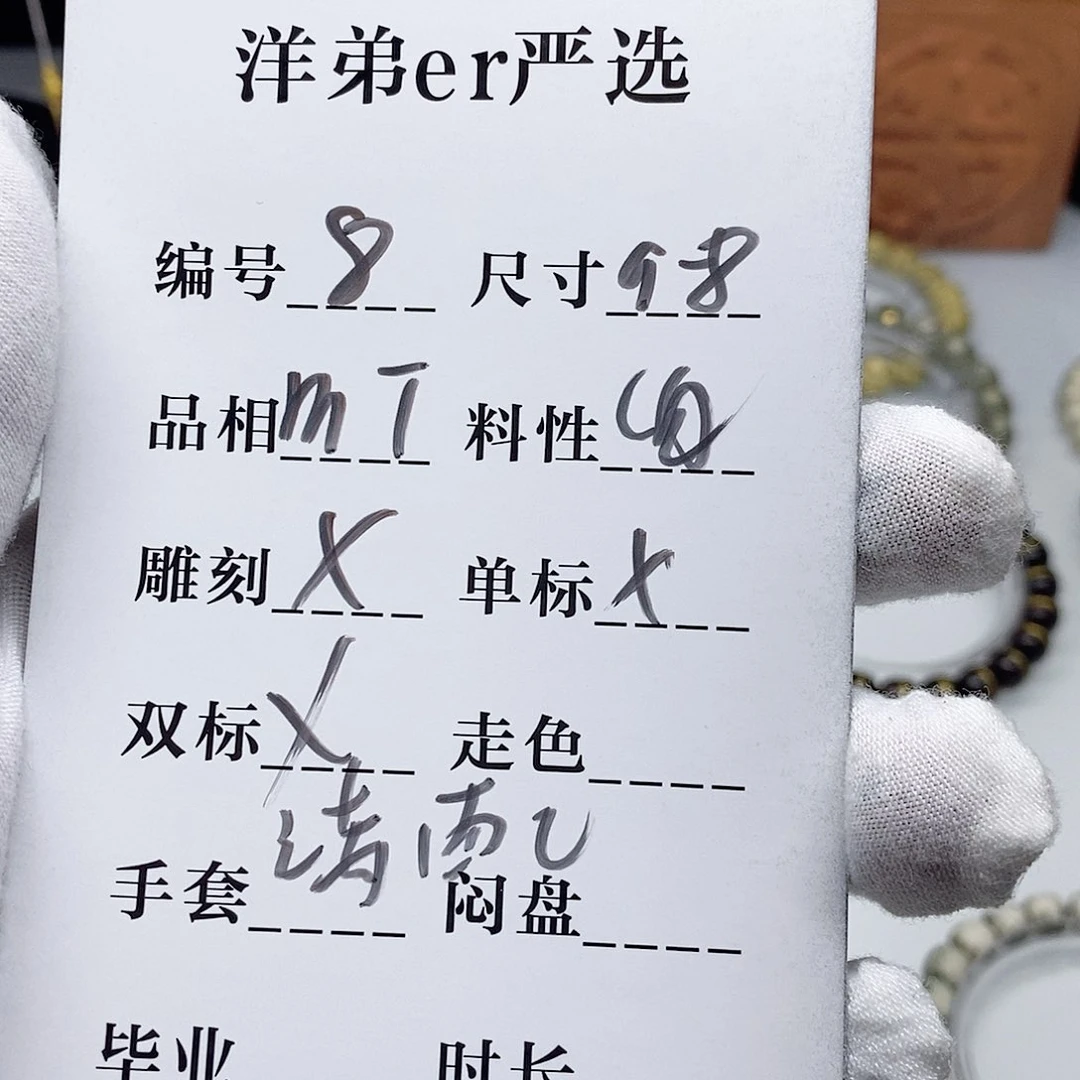 洋弟er严选
编号 8 尺寸 98
品相 m T 料性
雕刻 X 单标 X
双标 X 走色
清
手套 闷盘
毕业 时长